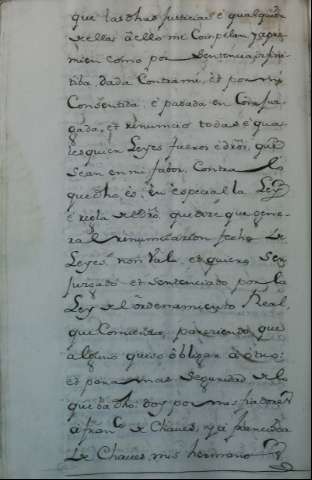 que las dhas Justicias é qualquier
de ellas á ello me Conpelan y apre-
mien como por Sentencia difini-
tiba dada Contra mi, et por mi
Consentida é pasada en Cosa juz-
gada, et renuncio todas é qua-
lesquier Leyes fueros é dros, que
sean en mi fabor, Contra lo
que dho és, en especial la Ley
é regla del dro, que dize que gene-
ral renunciacion fecha de
Leyes non Vala, et quiero Ser
juzgado et Sentenciado por la
Ley del ordenamiento Real,
que Comienza, pareciendo que
alguno quiso obligar á otro;
et para mas Seguridad de lo
que da dho: doy por mis fiadores
á franco de Chaves, y á francisca
de Chaves, mis hermanos